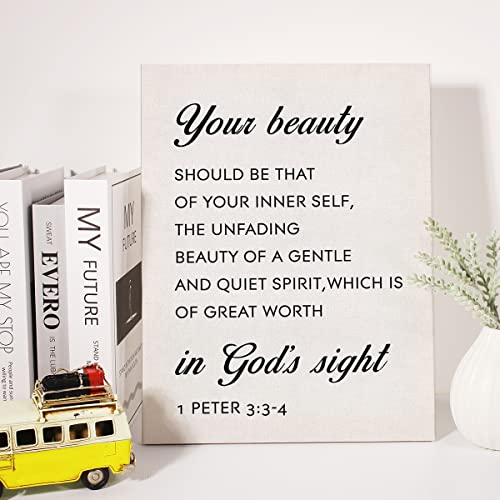 Your beauty
SHOULD BE THAT
OF YOUR INNER SELF,
THE UNFADING
BEAUTY OF A GENTLE
AND QUIET SPIRIT,WHICH IS
OF GREAT WORTH
in God's sight
1 PETER 3:3-4
YOU ARE MY STOP
People and
willing to wait
SWEAT
EVERO
IS THE LUB
MY FUTURE
STAND